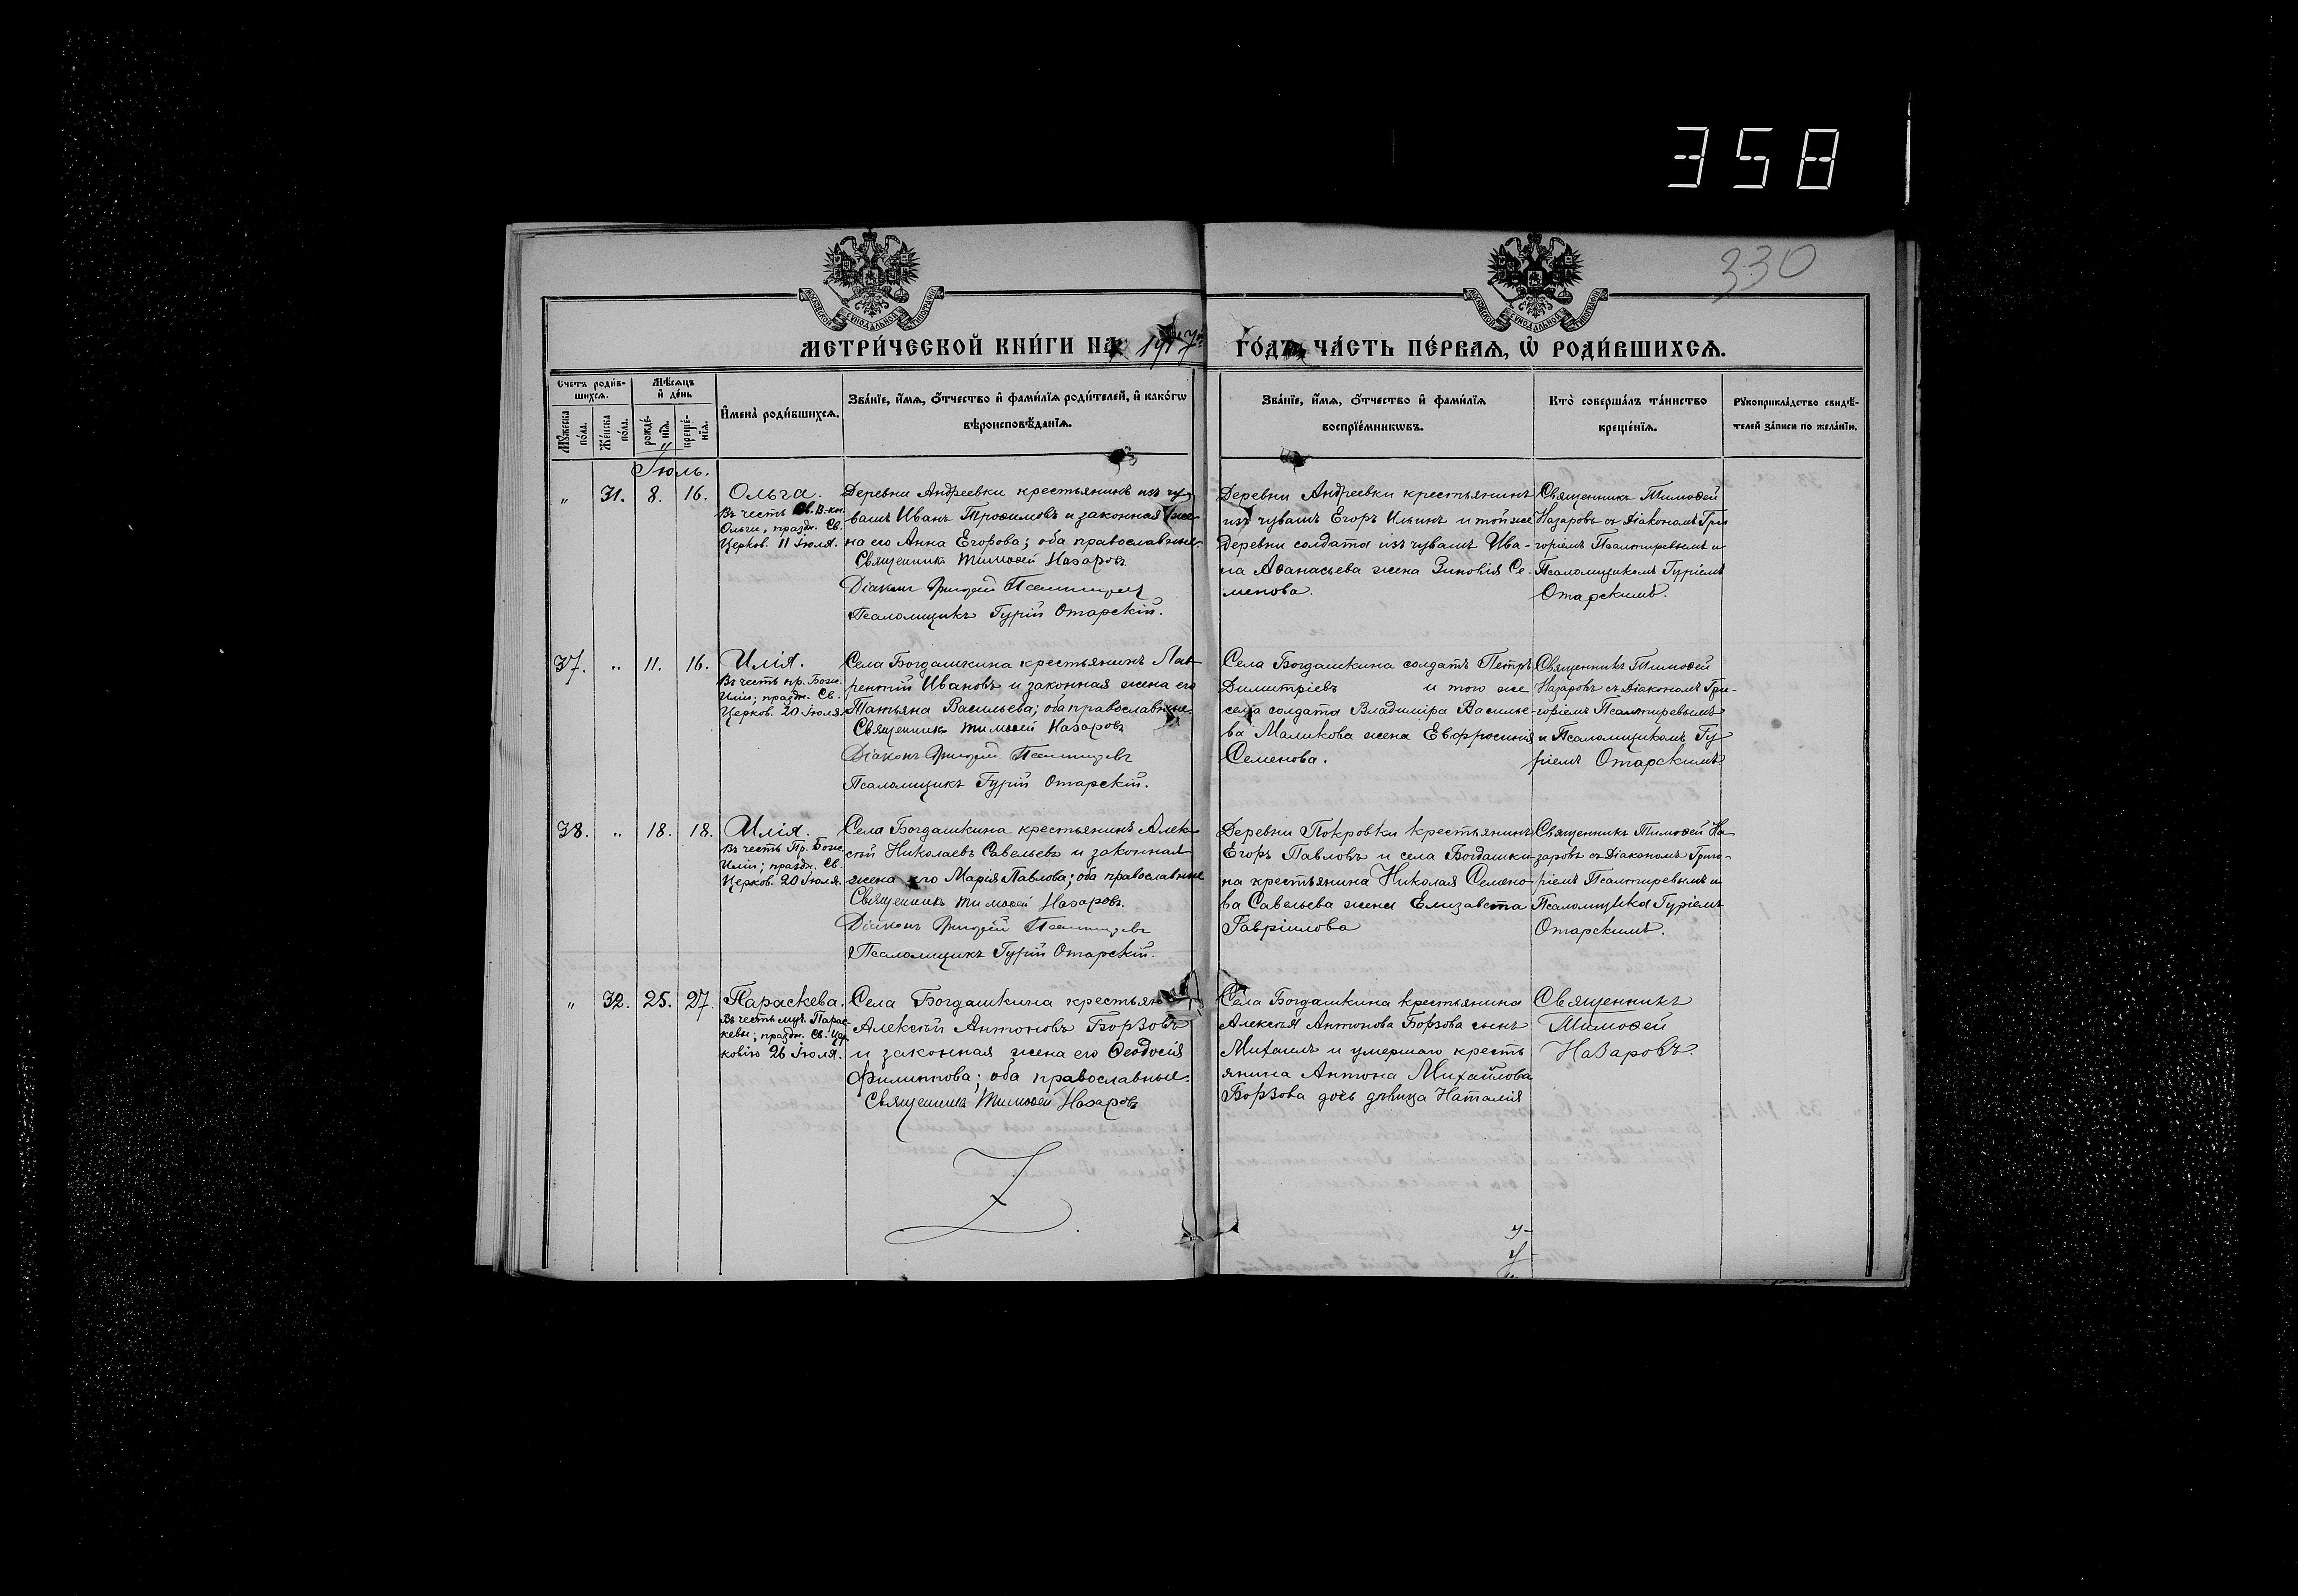 358
330
МОСКОВСКОЙ СѴНОДАЛЬНОЙ ТИПОГРАФІИ
МОСКОВСКОЙ СѴНОДАЛЬНОЙ ТИПОГРАФІИ
МЕТРИ́ЧЕСКОЙ КНИ́ГИ НА 1917 ГО́ДЪ ЧА́СТЬ ПЕ́РВАѦ, Ѡ҆ РОДИ́ВШИХСѦ.
Счетъ роди́в-
шихсѧ.
Мѣ́сѧцъ
и҆ де́нь
Мꙋ́жеска
по́ла.
Же́нска
по́ла.
рожде́-
нїѧ.
креще́-
нїѧ.
И҆мена̀ роди́вшихсѧ.
Зва́нїе, и҆́мѧ, ѻ҆́тчество и҆ фами́лїѧ роди́телей, и҆ како́гѡ
вѣроисповѣ́данїѧ.
Зва́нїе, и҆́мѧ, ѻ҆́тчество и҆ фами́лїѧ
воспрїе́мникѡвъ.
Кто̀ соверша́лъ та́инство
креще́нїѧ.
Рꙋкоприкла́дство свидѣ́-
телей за́писи по жела́нїю.
Іюль.
„ 31. 8. 16. Ольга.
Въ честь Св. В-кн.
Ольги, праздн. Св.
Церков. 11 іюля.
Деревни Андреевки крестьянинъ изъ чу-
вашъ Иванъ Трофимовъ и законная же-
на его Анна Егорова; оба православные.
Священникъ Тимоѳей Назаровъ
Діаконъ Григорій Псалтыревъ
Псаломщикъ Гурій Отарскій.
Деревни Андреевки крестьянинъ
изъ чувашъ Егоръ Ильинъ и той же
деревни солдата изъ чувашъ Ива-
на Аѳанасьева жена Зиновія Се-
менова.
Священникъ Тимоѳей
Назаровъ съ Діакономъ Гри
горіемъ Псалтыревымъ и
Псаломщикомъ Гуріемъ
Отарскимъ.
37. „ 11. 16. Илія.
Въ честь пр. Божія
Иліи; праздн. Св.
Церков. 20 іюля.
Села Богдашкина крестьянинъ Лав-
рентій Ивановъ и законная жена его
Татьяна Васильева; оба православные.
Священникъ Тимоѳей Назаровъ
Діаконъ Григорій Псалтыревъ
Псаломщикъ Гурій Отарскій.
Села Богдашкина солдатъ Петръ
Димитріевъ и того же
села солдата Владиміра Василье-
ва Маликова жена Евфросинія
Семенова.
Священникъ Тимоѳей
Назаровъ съ Діакономъ Гри-
горіемъ Псалтыревымъ
и Псаломщикомъ Гу
ріемъ Отарскимъ
38. „ 18. 18. Илія.
Въ честь Пр. Божія
Иліи; праздн. Св.
Церков. 20 іюля.
Села Богдашкина крестьянинъ Алек
сѣй Николаевъ Савельевъ и законная
жена его Марія Павлова; оба православные
Священникъ Тимоѳей Назаровъ.
Діаконъ Григорій Псалтыревъ
Псаломщикъ Гурій Отарскій.
Деревни Покровки крестьянинъ
Егоръ Павловъ и села Богдашки-
на крестьянина Николая Семено-
ва Савельева жена Елизавета
Гавріилова
Священникъ Тимоѳей На
заровъ съ Діакономъ Григо-
ріемъ Псалтыревымъ и
Псаломщика Гуріемъ
Отарскимъ.
„ 32. 25. 27. Параскева.
Въ честь муч. Парас-
кевы; праздн. Св. Цер
ковію 26 іюля.
Села Богдашкина крестьян
Алексѣй Антоновъ Борзовъ
и законная жена его Ѳеодосія
Филиппова; оба православные.
Священникъ Тимоѳей Назаровъ
Села Богдашкина крестьянина
Алексѣя Антонова Борзова сынъ
Михаилъ и умершаго кресть
янина Антона Михайлова
Борзова дочь дѣвица Наталія
Священникъ
Тимоѳей
Назаровъ.